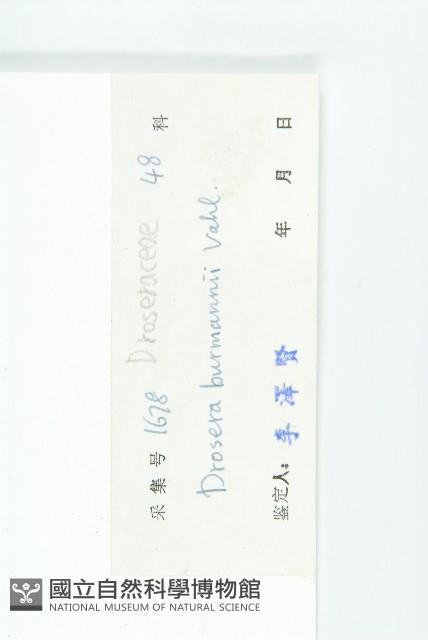 采集号 1678 Droseraceae 48 科
Drosera burmannii Vahl.
鉴定人: 李澤賢 年 月 日
國立自然科學博物館
NATIONAL MUSEUM OF NATURAL SCIENCE